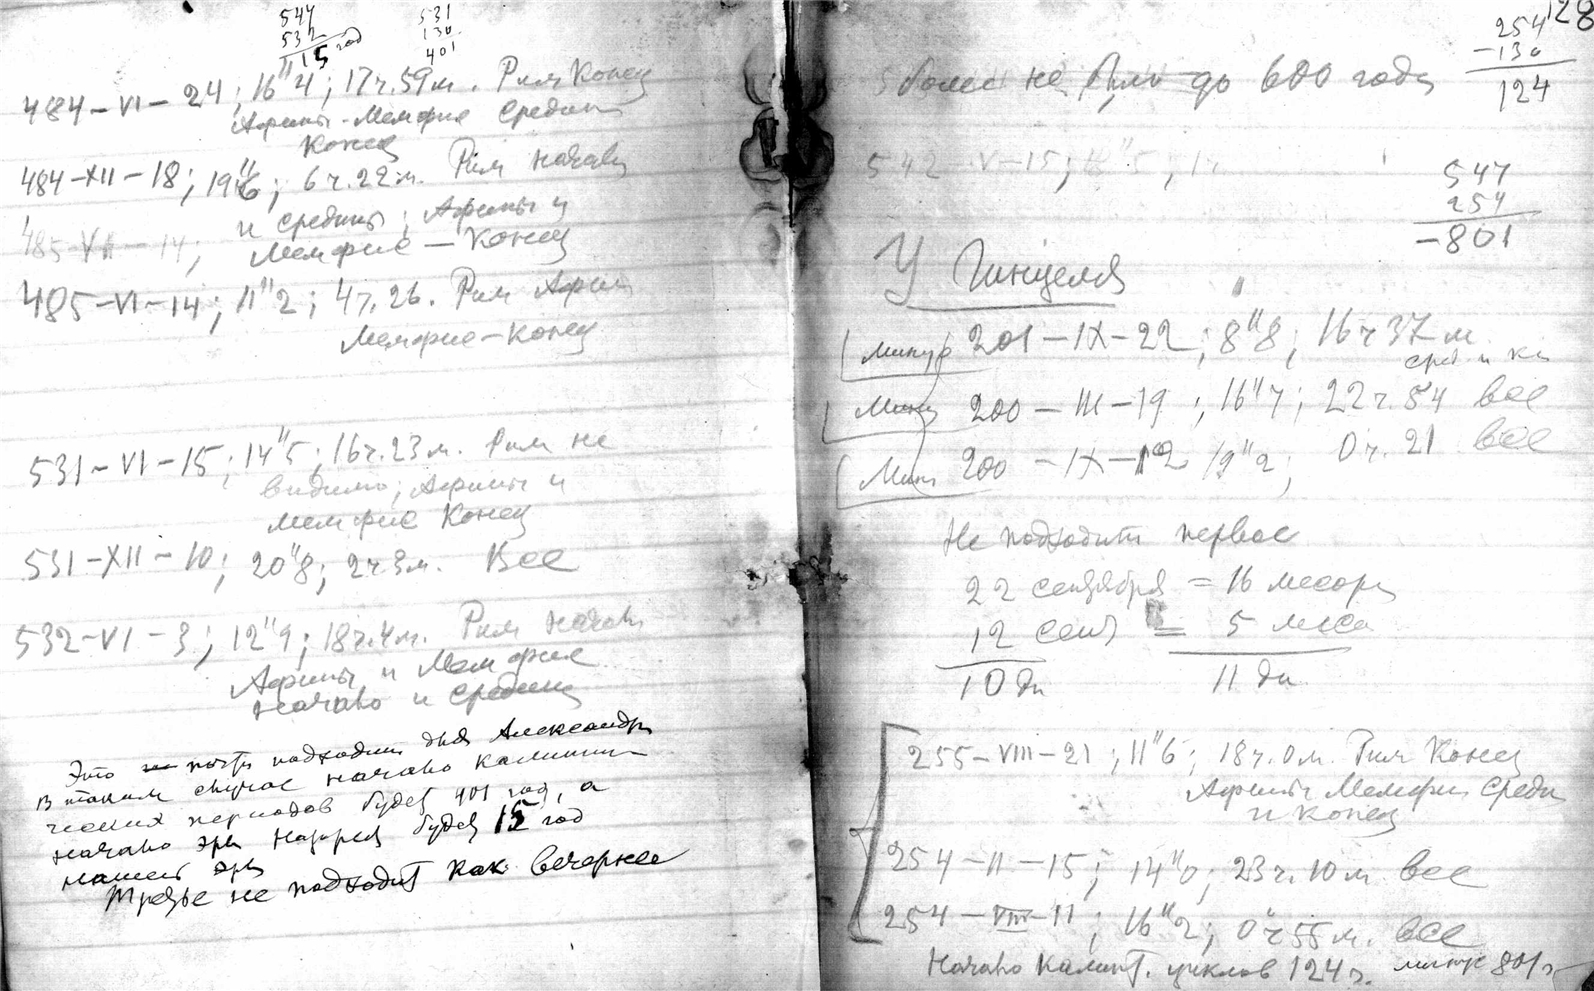 547
532
15 год
531
130
401
484-VI-24; 16"4; 17ч.59м. Рим Конец
Афины-Мемфис Средина
Конец
484-XII-18; 19"6; 6ч.22м. Рим начало
и средина; Афины и
485-VII-14;
Мемфис - Конец
485-VI-14; 11"2; 4ч.26. Рим Афины
Мемфис-Конец
531-VI-15; 14"5; 16ч.23м. Рим не
видимо; Афины и
Мемфис Конец
531-XII-10; 20"8; 2ч3м. Все
532-VI-3; 12"9; 18ч.4м. Рим начало
Афины и Мемфис
Начало и средина
Это почти подходит для Александра
В таком случае начало каллипи-
ческих периодов будет 401 год, а
начало эры будет 15 год
нашей эры
Третье не подходит как вечернее
128
254
-130
124
более не было до 600 года
542-V-15;
547
254
-801
У Гинцеля
минус 201-IX-22; 8"8; 16ч37м.
сред и ко
Мину 200-III-19; 16"7; 22ч.54 все
Мин 200-IX-12 12"2; 0ч.21 все
Не подходит первое
22 сентября = 16 месоры
12 сент = 5 месо
10 дн 11 дн
255-VIII-21; 11"6; 18ч.0м. Рим Конец
Афины Мемфис Среди
и конец
254-II-15; 14"0; 23ч.10м все
254-VIII-11; 16"2; 0ч55м. все
Начало Калип. циклов 124г. минус 801г